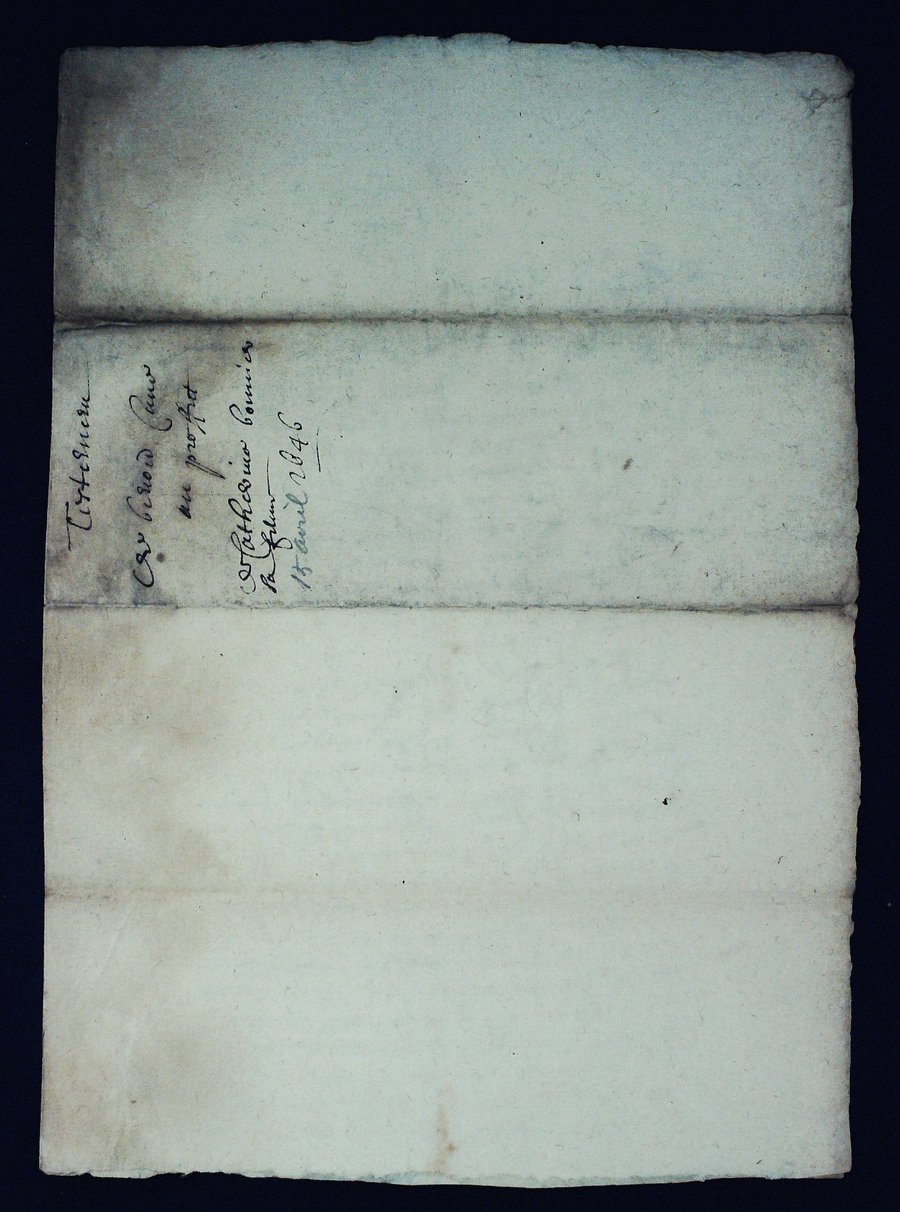 Testament
de benoid
au proffit
de Catherine bonnier
sa femme
15 avril 1646